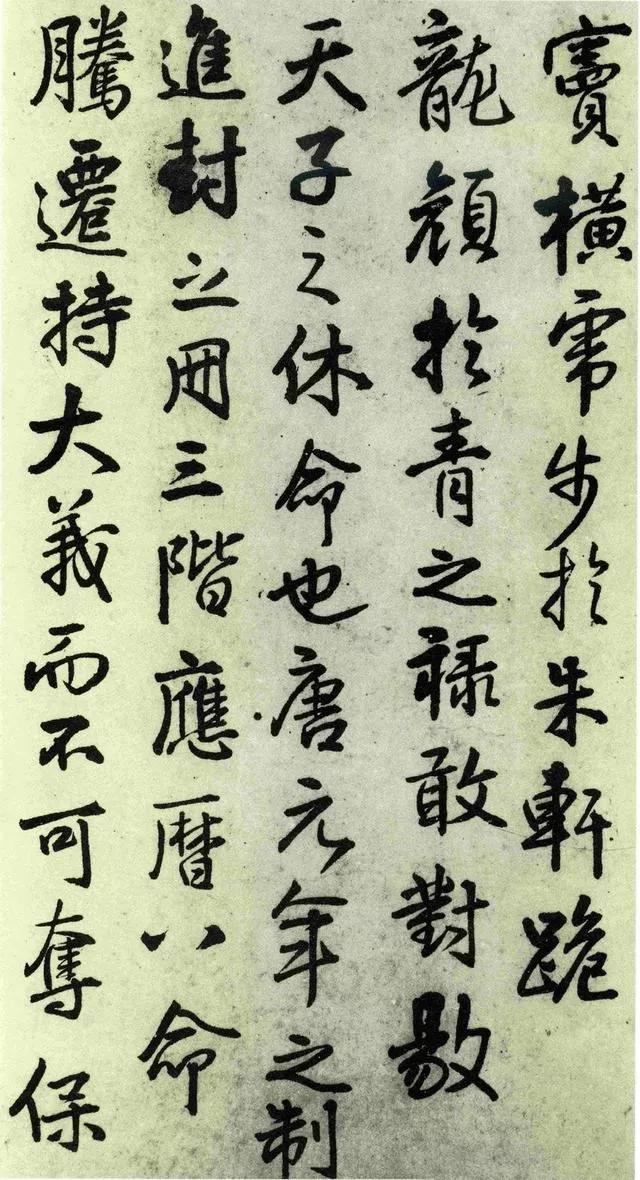 竇橫步於朱軒跪
龍顏於青之祿敢對敭
天子之休命也唐元年之制
進封之冊三階應暦八命
騰遷持大義而不可奪保